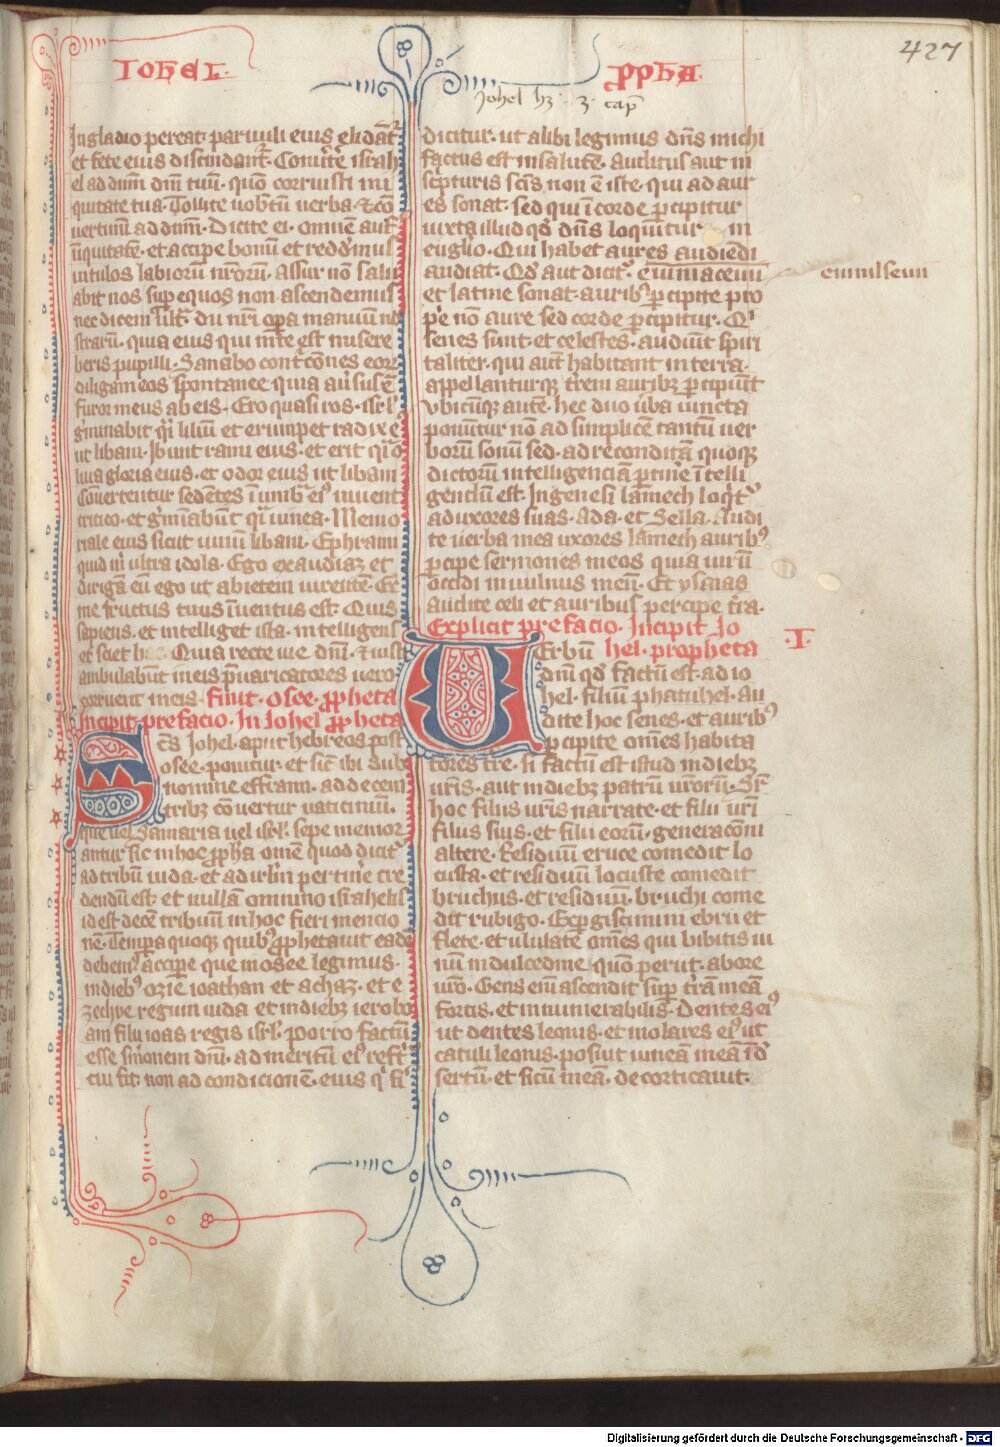 427
IOHEL·
PPHA·
Johel hȝ · 3 · cap̄
In gladio pereat paruuli eius elidāt̄
et fete eius discindant̄· Conu̾te israh
el ad dnm̄ dm̄ tuū· quō corruisti in i
quitate tua· Tollite uobcū uerba· et cō
uertimī ad dnm· Dicite ei· omnē aufer
iniquitatē· et accipe bonū et reddimus
uitulos labiorū nr̄orū· Assur nō salu
abit nos sup equos non ascendemus
nec dicem ult̄· dii nr̄i opa manuum no
strarū· quia eius qui in te est misere
beris pupilli· Sanabo contciones eorū
diligam eos spontanee quia auersus ē
furor meus ab eis· Ero quasi ros· isrl
g̾minabit q̄i liliū et erumpet radix ei
ut libani· Ibunt rami eius· et erit q̄i o
liua gloria eius· et odor eius ut libani
Conuertentur sedētes ī umb̄ ei nuient
tritico· et g̾minabūt q̄i uinea· Memo
riale eius sicut uinū libani· Ephraim
quid m̄ ultra idola· Ego exaudiā et
dirigā eū ego ut abietem uirentē· Ex
me fructus tuus īuentus est· Quis
sapiens· et intelliget ista· intelligens
et sciet hec· Quia recte uie dn̄i· et iusti
ambulabūt in eis p̄uaricatores uero
corruent in eis· finit· osee· ppheta
Incipit prefacio· In Johel ppheta
Scs̄ Johel· aput hebreos post
osee· ponitur· et sic̄ ibi sub
nomine effraim· ad decem
tribꝫ cōuertur uaticiniū·
que uel samaria uel isrl· sepe memor
antur sic in hoc ppha omē quod dicit̄
ad tribū iuda· et ad irlm̄ pertinē cre
dendū est· et nullā omnino israhelis
id est decē tribuū in hoc fieri mencio
nē· Tempa quoqꝫ quibꝰ pphetauit eadē
debemꝰ accipe que in osee legimus·
in diebꝰ ozie ioathan et achaz· et e
zechye regum iuda et in diebꝫ ierobo
am filij ioas regis isrl· Porro factū
esse sm̄onem dn̄i· ad meritū eiꝰ refer̄
cui fit· non ad condicionē· eius q̄ fi
dicitur· ut alibi legimus dn̄s michi
factus est in salutē· Auditus aut in
scripturis scīs non ē iste· qui ad aur
es sonat· sed qui ī corde pcipitur
iuxta illud qd̄ dn̄s loquitur in
euglio· Qui habet aures audiēdi
audiat· Qd̄ aut dicit̄·
et latine sonat· auribꝰ pcipite pro
pe nō aure sed corde pcipitur· Qi
senes sunt· et celestes· audiūt spiri
taliter· qui aut̄ habitant in terra·
appellanturqꝫ terreni auribꝫ pcipiūt
vbicūqꝫ autē· hec duo uba iuncta
ponūtur nō ad simplicē tantū uer
borū sonū sed· ad reconditā quoqꝫ
dictorū intelligenciā ptinē ītelli
gendū est· In genesi lamech loqt̄
ad uxores suas· Ada· et Sella· Audi
te uerba mea uxores lamech auribꝰ
pcipe sermones meos quia uirū
occidi in uulnus meū· Et ysaias
audite celi et auribus percipe t̄ra·
Explicit prefacio· Incipit Jo
hel· propheta
I
Uerbū
dn̄i qd̄ factū est· ad io
hel· filiū phatuhel· au
dite hoc senes· et auribꝰ
pcipite omēs habita
tores t̄re· si factū est istud in diebꝫ
uris· aut in diebꝫ patrū ur̄orū· Sr̄
hoc filiis ur̄is narrate· et filii ur̄i
filiis suis· et filii eorū· generacōni
altere· Residuū eruce comedit lo
custa· et residuū locuste comedit
bruchus· et residuū· bruchi come
dit rubigo· Expgiscimini ebrii et
flete· et ululate omēs qui bibitis ui
nū in dulcedine quō periit· ab ore
ur̄o· Gens eim̄ ascendit sup t̄rā meā
fortis· et innumerabilis· Dentes eiꝰ
ut dentes leonis· et molares eiꝰ ut
catuli leonis· posuit uineā meā ī dē
sertū· et ficū meā· decorticauit·
Digitalisierung gefördert durch die Deutsche Forschungsgemeinschaft - DFG